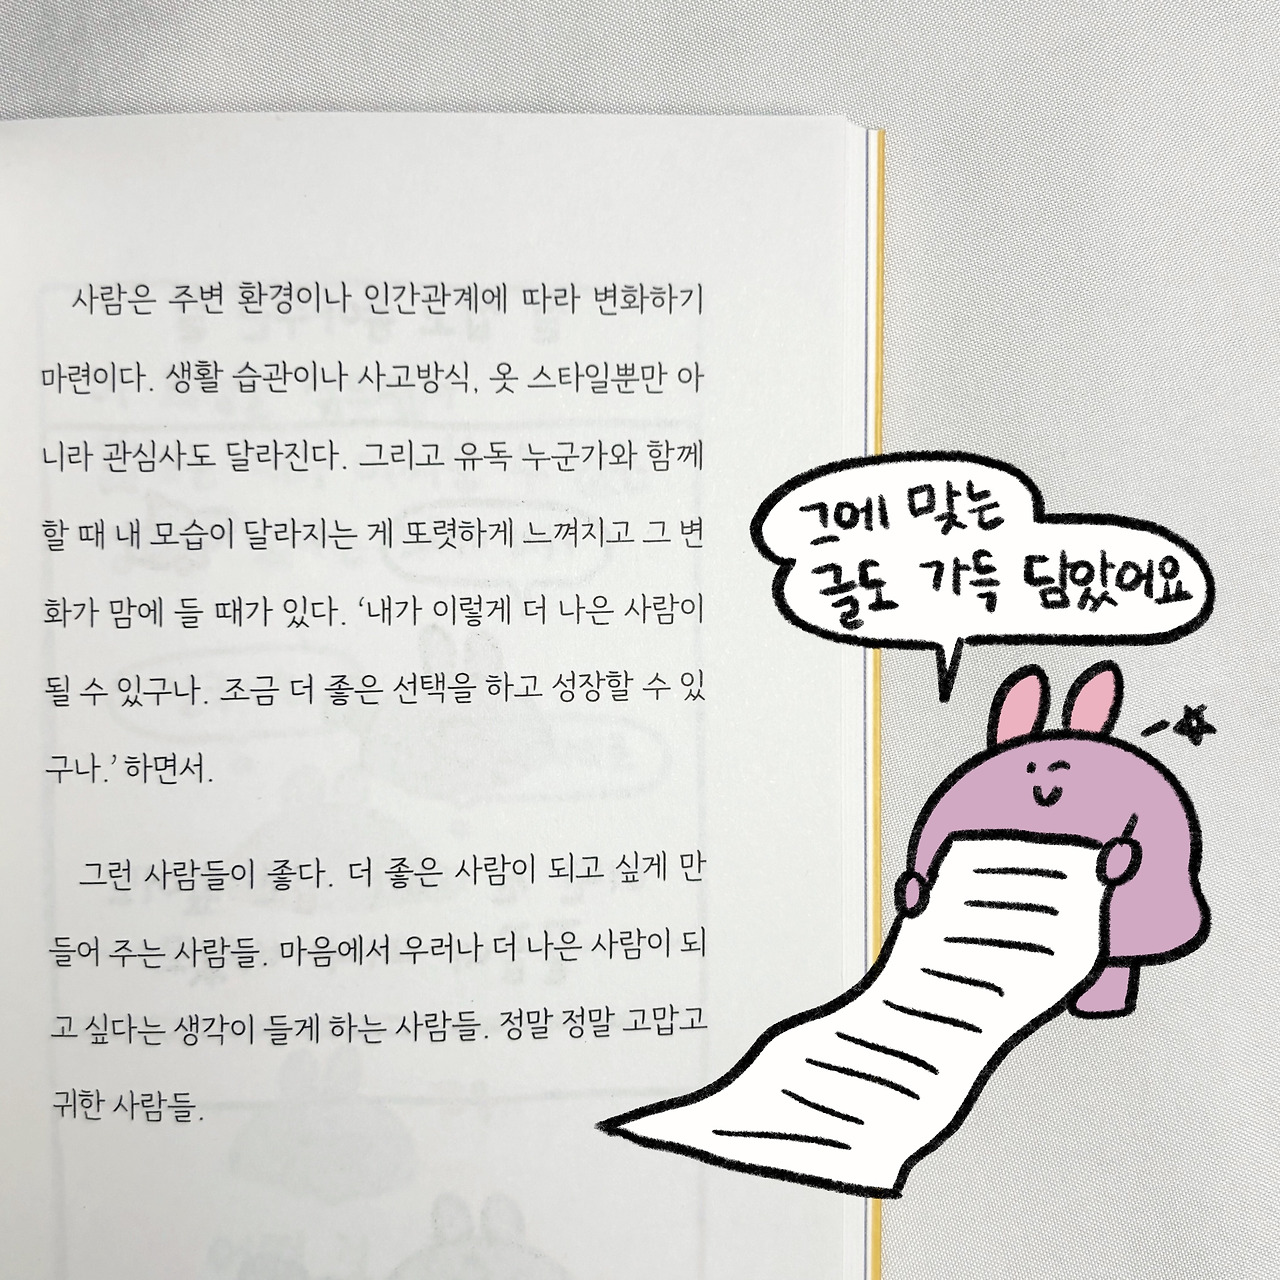 사람은 주변 환경이나 인간관계에 따라 변화하기
마련이다. 생활 습관이나 사고방식, 옷 스타일뿐만 아
니라 관심사도 달라진다. 그리고 유독 누군가와 함께
할 때 내 모습이 달라지는 게 또렷하게 느껴지고 그 변
화가 맘에 들 때가 있다. ‘내가 이렇게 더 나은 사람이
될 수 있구나. 조금 더 좋은 선택을 하고 성장할 수 있
구나.’ 하면서.
그런 사람들이 좋다. 더 좋은 사람이 되고 싶게 만
들어 주는 사람들. 마음에서 우러나 더 나은 사람이 되
고 싶다는 생각이 들게 하는 사람들. 정말 정말 고맙고
귀한 사람들.
그에 맞는
글도 가득 담았어요